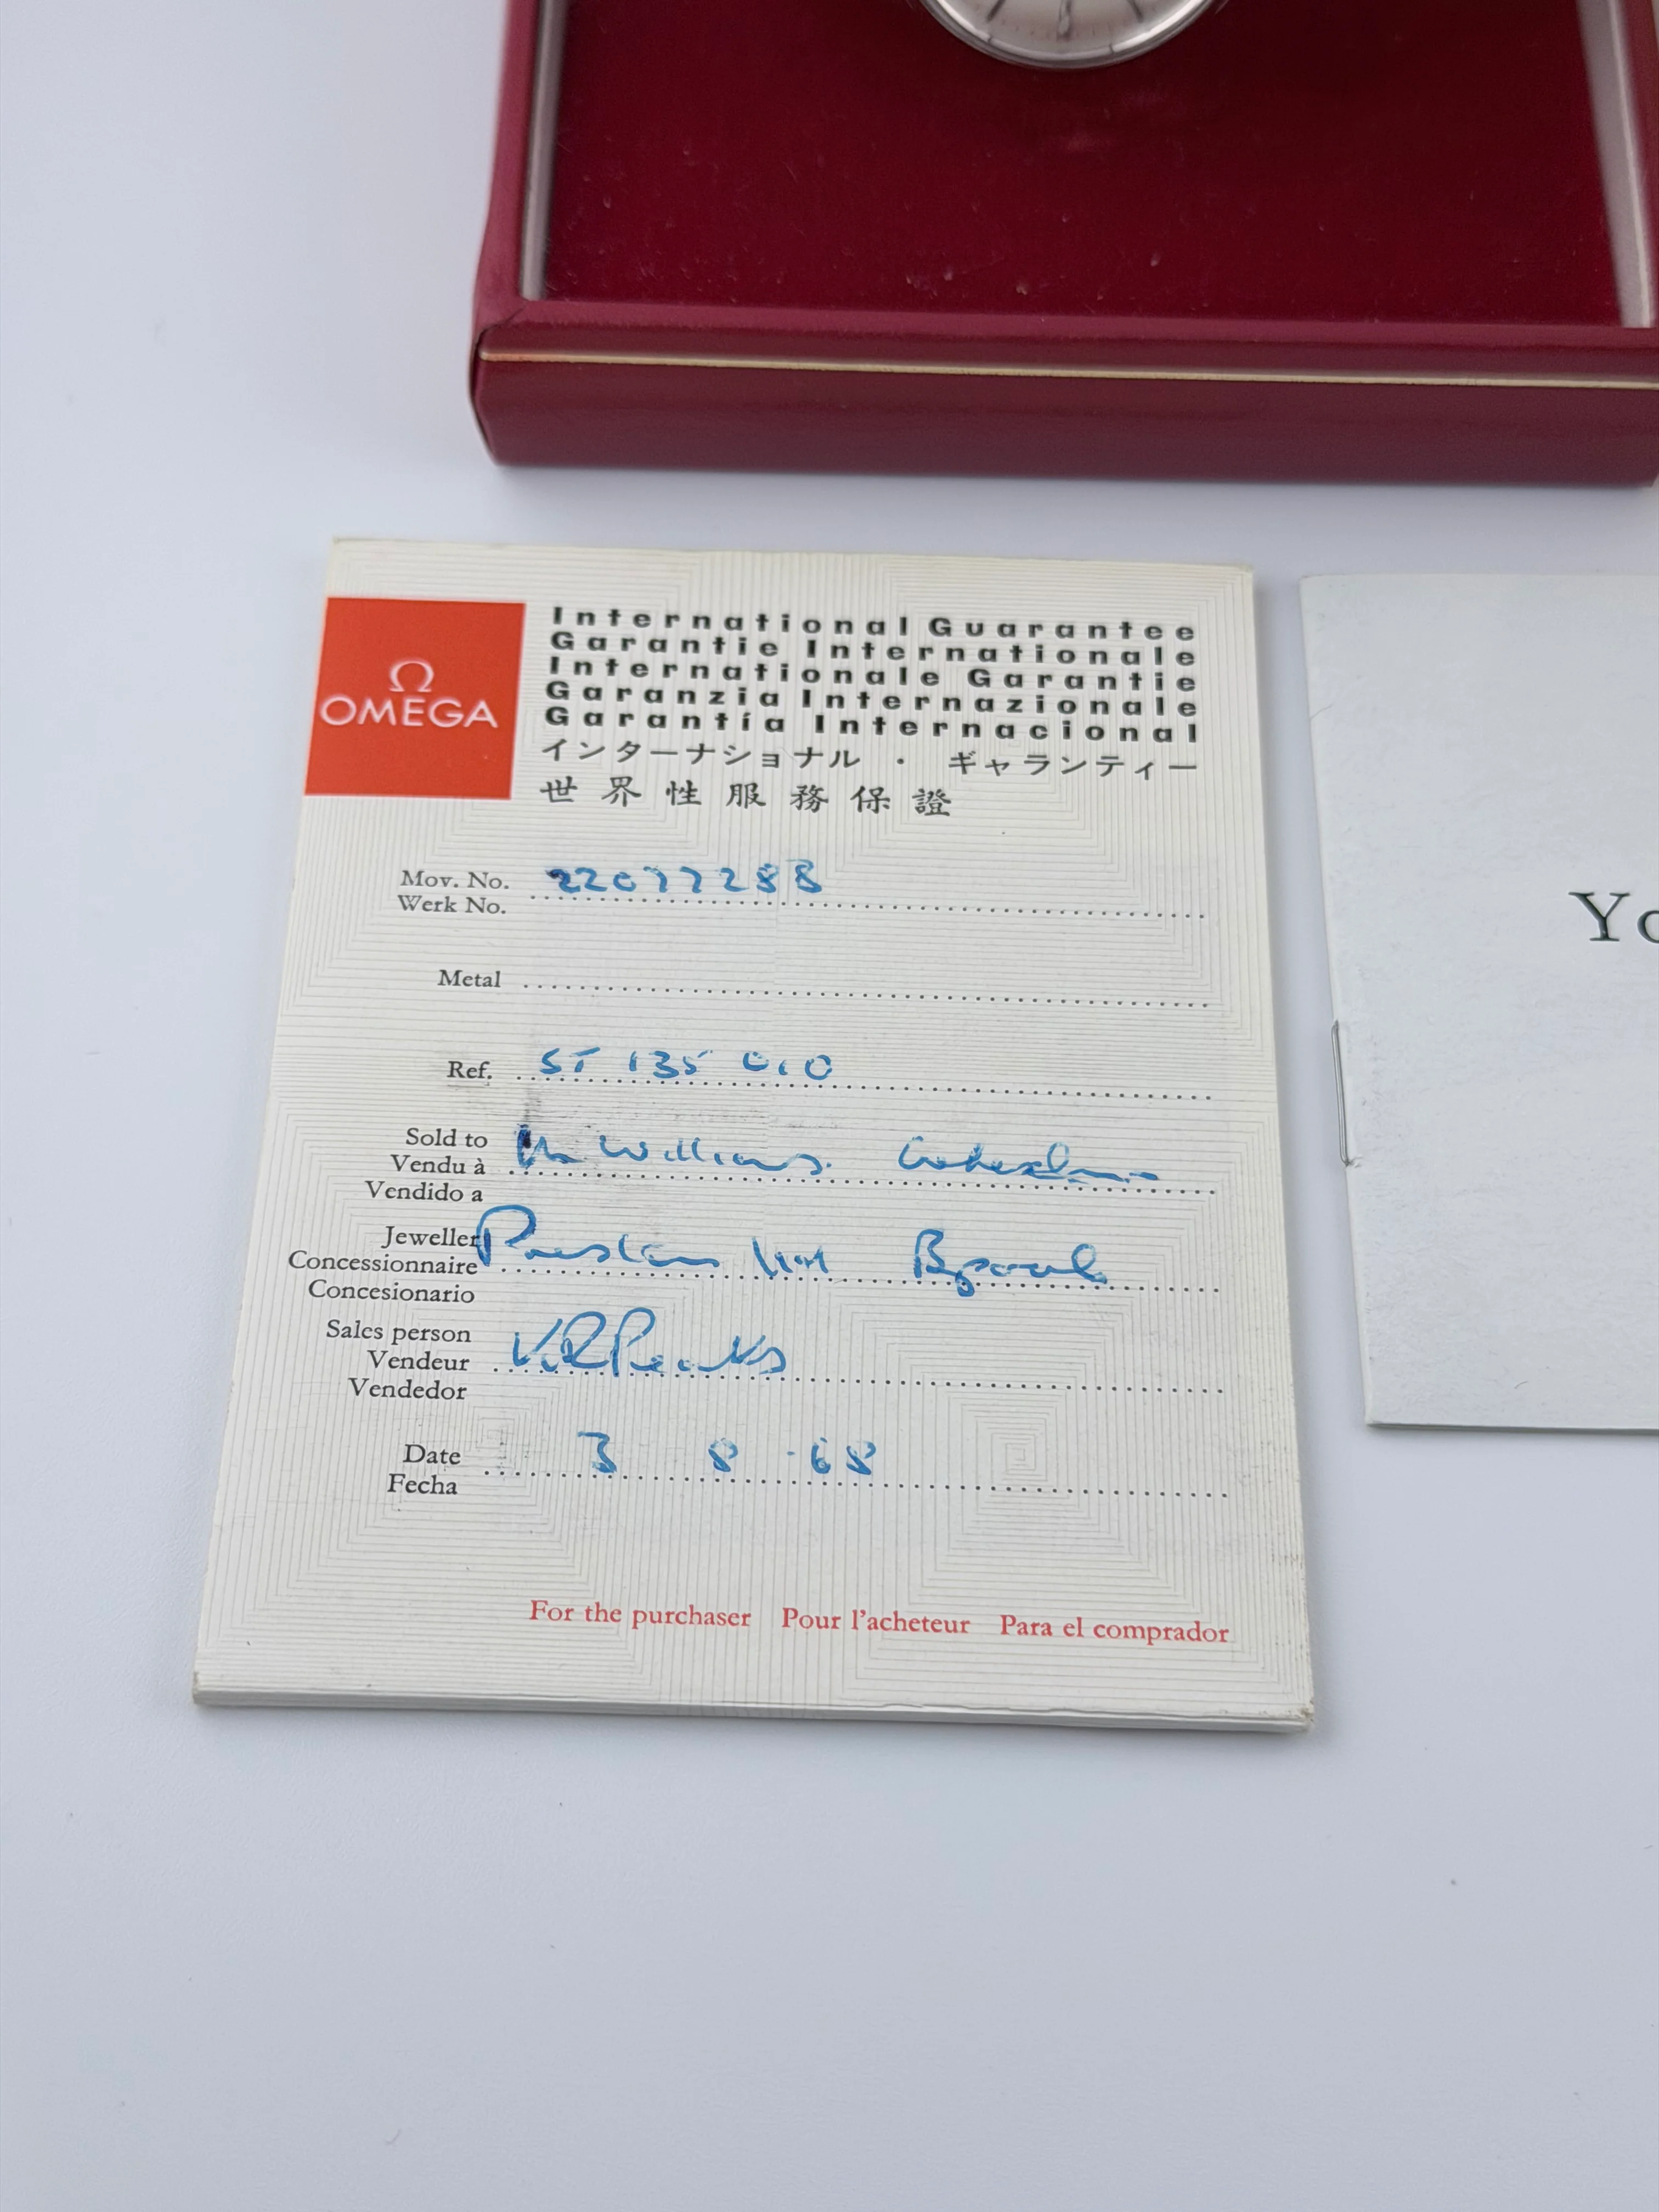 Ω
OMEGA
International Guarantee
Garantie Internationale
Internationale Garantie
Garanzia Internazionale
Garantía Internacional
インターナショナル ・ ギャランティー
世界性服務保證
Mov. No. 22077288
Werk No.
Metal
Ref. ST 135 010
Sold to
Vendu à Williams.
Vendido a
Jeweller
Concessionnaire
Concesionario
Sales person
Vendeur
Vendedor
Date 3 8 - 68
Fecha
For the purchaser Pour l'acheteur Para el comprador
Yo